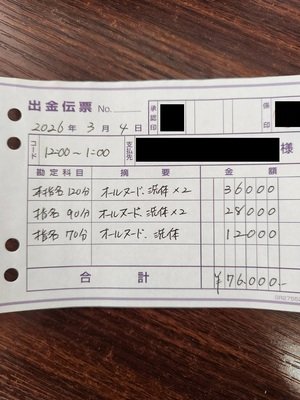 出金伝票 No.
承認印
係印
2026年 3月 4日
コード 12:00〜1:00 支払先 様
勘定科目 摘要 金額
本指名120分 オールヌード、洗体×2 36000
指名 90分 オールヌード、洗体×2 28000
指名 70分 オールヌード、洗体 12000
合計 ¥76.000-